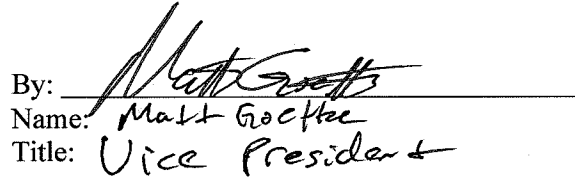 By: Matt Goettke
Name: Matt Goettke
Title: Vice President